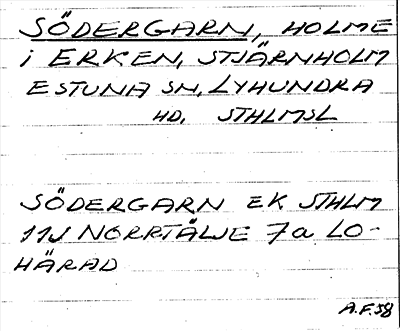 SÖDERGARN, HOLME
i ERKEN, STJÄRNHOLM
ESTUNA SN, LYHUNDRA
HD, STHLMSL
SÖDERGARN EK STHLM
11J NORRTÄLJE 7a LO-
HÄRAD
A.F.58